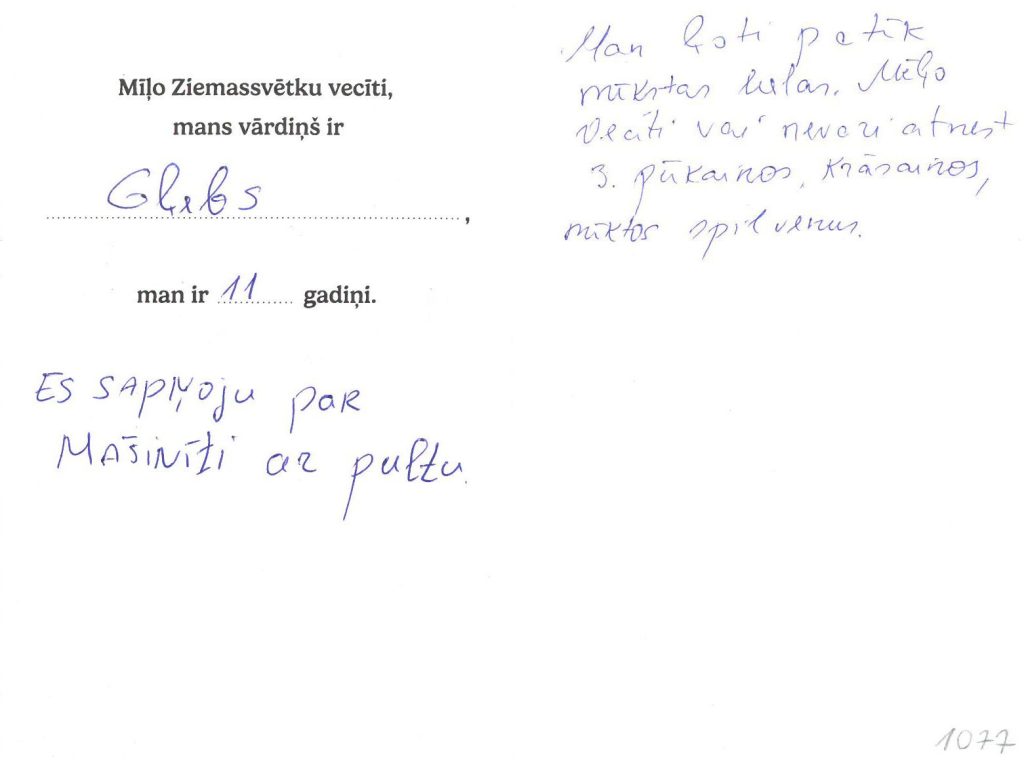 Mīļo Ziemassvētku vecīti,
mans vārdiņš ir
Gļebs,
man ir 11 gadiņi.
ES SAPŅOJU PAR
MAŠINĪTI ar pultu.
Man ļoti patīk
mīkstas lielas. Mīļo
Vecīti vai nevari atnest
3. pūkainos, krāsainos,
mīktos spilvenus.
1077